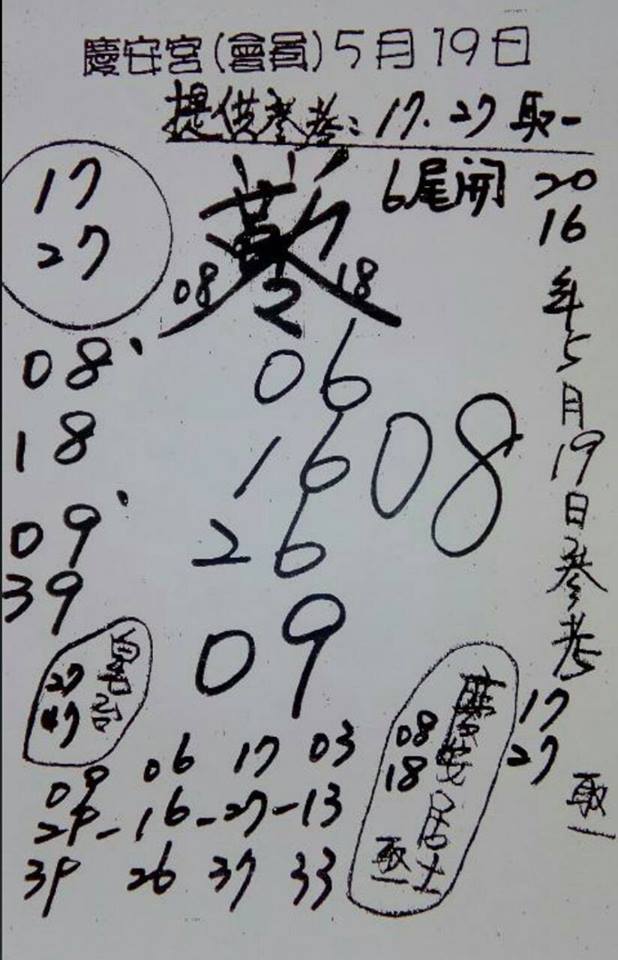 慶安宮(會員)5月19日
提供參考:17.27取一
17
27
6尾開
08
18
2016年5月19日參考
17
27
取一
08
18
09
39
06
16
26
08
09
27
47
慶安居士
08
18
取一
09 06 17 03
29-16-27-13
39 26 37 33